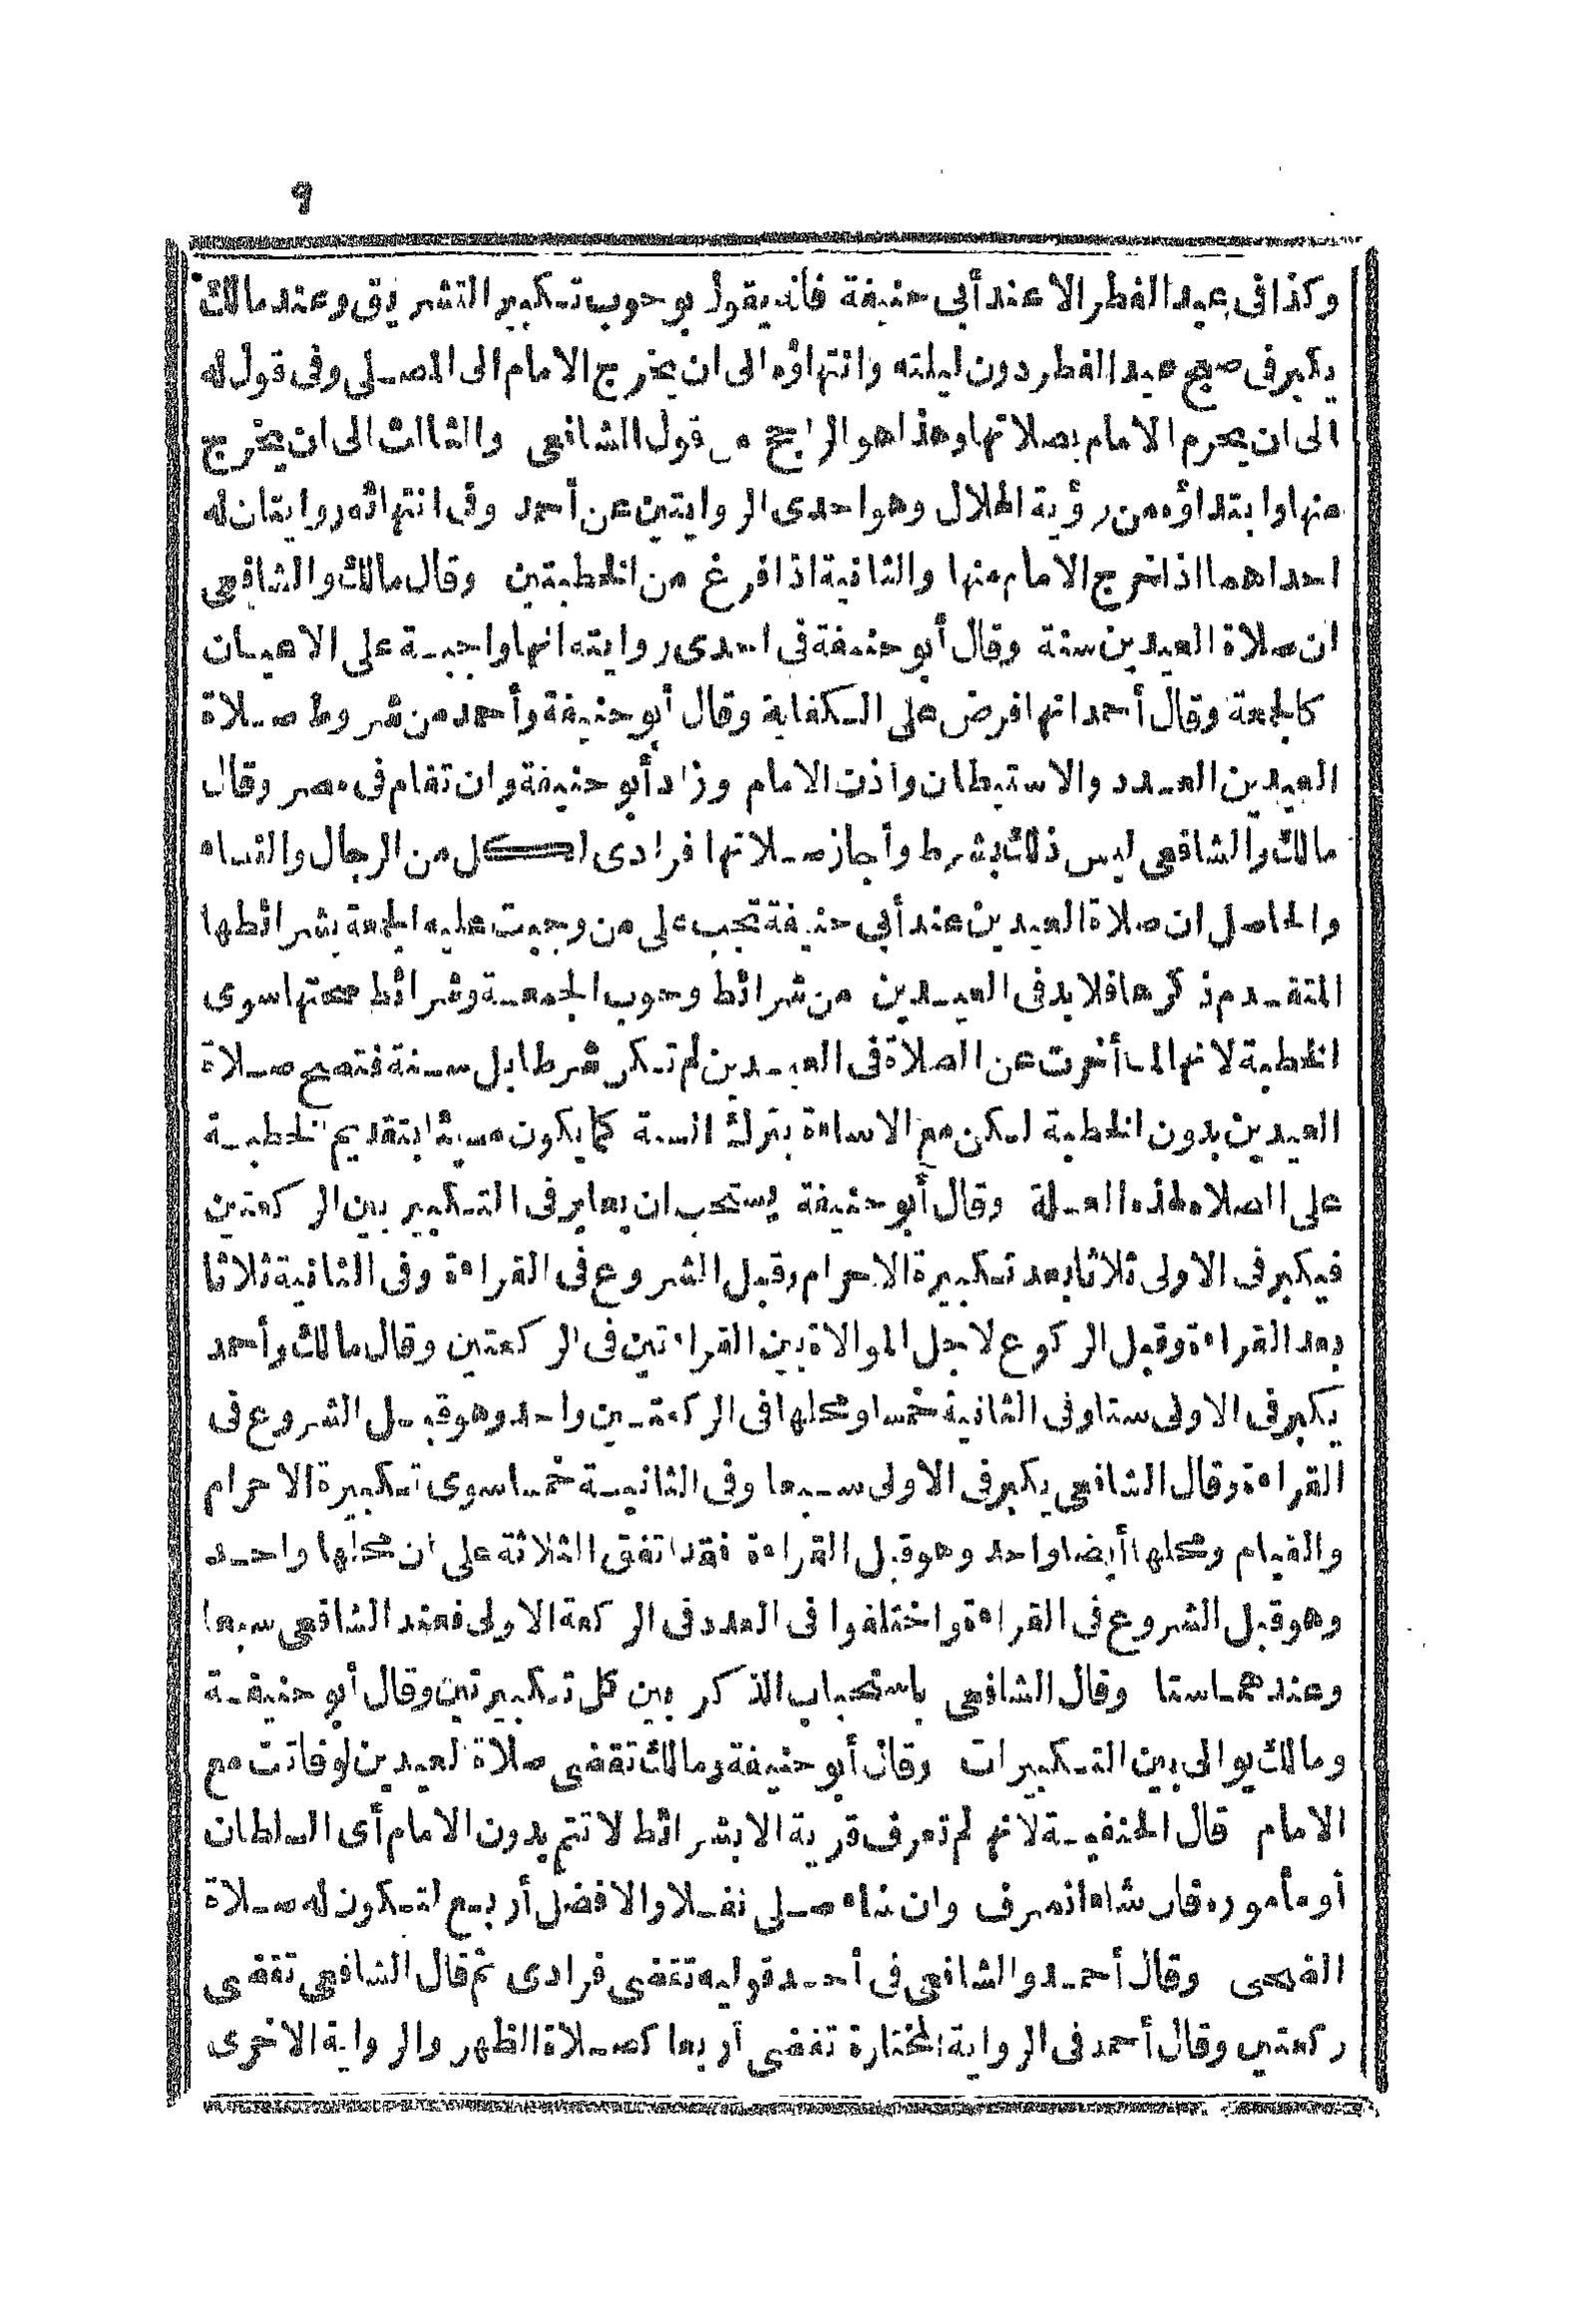 ٩
وكذا في عيد الفطر الا عند أبي حنيفة فانه يقول بوجوب تكبير التشريق وعند مالك
يكبر في صبح عيد الفطر دون ليلته وانتهاؤه الى ان يخرج الامام الى المصلى وفى قول له
الى ان يحرم الامام بصلاتها وهذا هو الراجح من قول الشافعى والثالث الى ان يخرج
منها وابتداؤه من رؤية الهلال وهو احدى الروايتين عن أحمد وفى انتهائه روايتان له
احداهما اذا خرج الامام منها والثانية اذا فرغ من الخطبتين وقال مالك والشافعى
ان صلاة العيدين سنة وقال أبو حنيفة فى احدى روايته انها واجبة على الاعيان
كالجمعة وقال أحمد انها فرض على الكفاية وقال أبو حنيفة وأحمد من شروط صلاة
العيدين العدد والاستيطان واذن الامام وزاد أبو حنيفة وان تقام فى مصر وقال
مالك والشافعى ليس ذلك بشرط وأجاز صلاتها فرادى لكل من الرجال والنساء
والحاصل ان صلاة العيدين عند أبي حنيفة تجب على من وجبت عليه الجمعة بشرائطها
المتقدم ذكرها فلا بد فى العيدين من شرائط وجوب الجمعة وشرائط صحتها سوى
الخطبة لانها لما أخرت عن الصلاة فى العيدين لم تكن شرطا بل سنة فتصح صلاة
العيدين بدون الخطبة لكن مع الاساءة بترك السنة كما يكون مسيئا بتقديم الخطبة
على الصلاه لهذه العلة وقال أبو حنيفة يستحب ان يغاير فى التكبير بين الركعتين
فيكبر فى الاولى ثلاثا بعد تكبيرة الاحرام وقبل الشروع فى القراءة وفى الثانية ثلاثا
بعد القراءة وقبل الركوع لاجل الموالاة بين القراءتين فى الركعتين وقال مالك وأحمد
يكبر فى الاولى ستا وفى الثانية خمسا ومحلها فى الركعتين واحد وهو قبل الشروع فى
القراءة وقال الشافعى يكبر فى الاولى سبعا وفى الثانية خمسا سوى تكبيرة الاحرام
والقيام ومحلها أيضا واحد وهو قبل القراءة فقد اتفق الثلاثة على ان محلها واحد
وهو قبل الشروع فى القراءة واختلفوا فى العدد فى الركعة الاولى فعند الشافعى سبعا
وعندهما ستا وقال الشافعى باستحباب الذكر بين كل تكبيرتين وقال أبو حنيفة
ومالك يوالى بين التكبيرات وقال أبو حنيفة ومالك تقضى صلاة لعيدين لو فاتت مع
الامام قال الحنفية لانها لم تعرف قربة الا بشرائط لا تتم بدون الامام أى السلطان
أو مأموره فان شاء انصرف وان شاء صلى نفلا والافضل أربع لتكون له صلاة
الضحى وقال أحمد والشافعى فى أحد قوليه تقضى فرادى ثم قال الشافعى تقضى
ركعتين وقال أحمد فى الرواية المختارة تقضى أربعا كصلاة الظهر والرواية الاخرى